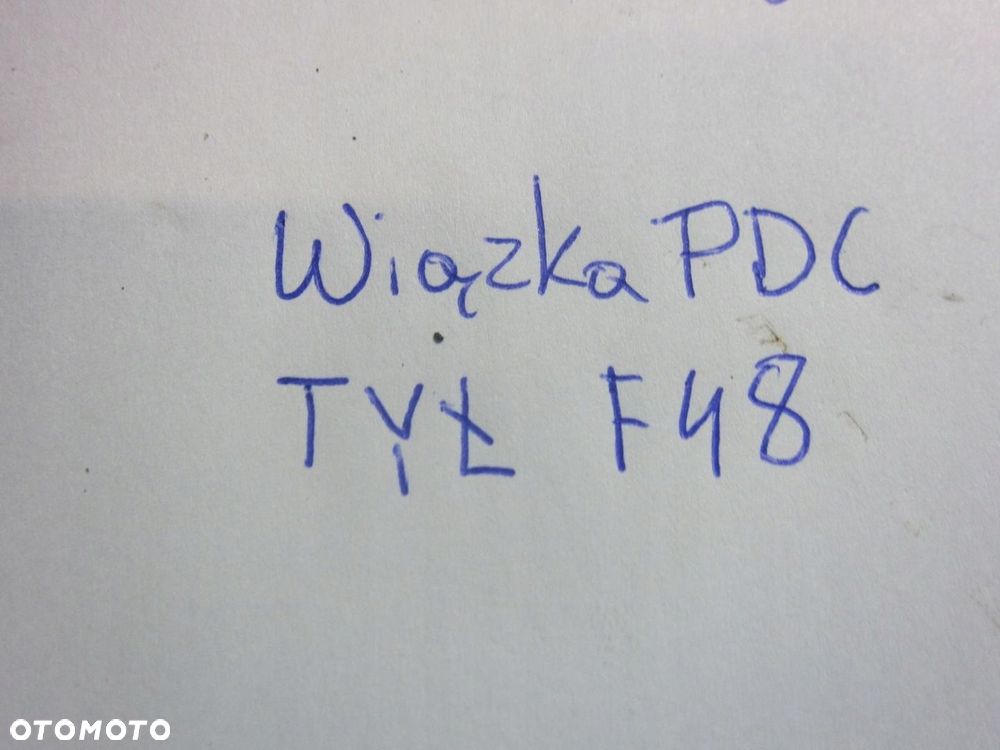 Wiązka PDC
TYŁ F48
OTOMOTO